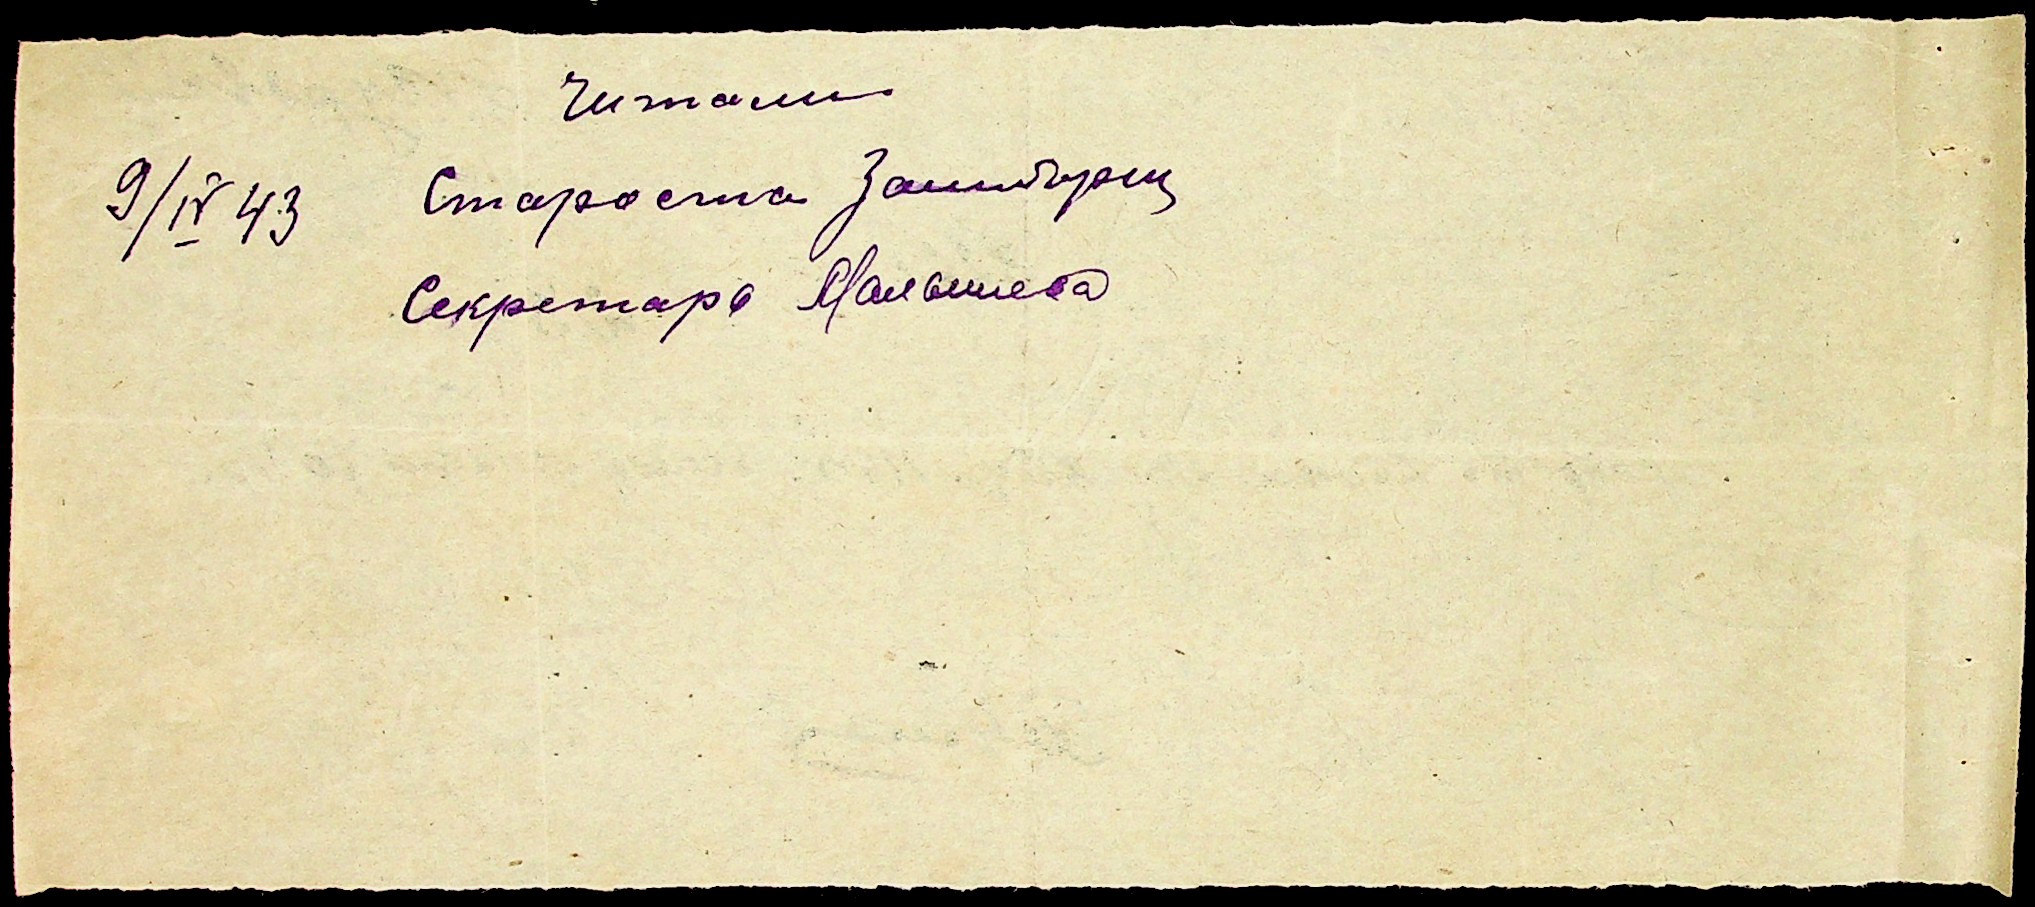 Читали
9/IV 43 Староста
Секретарь Малышева